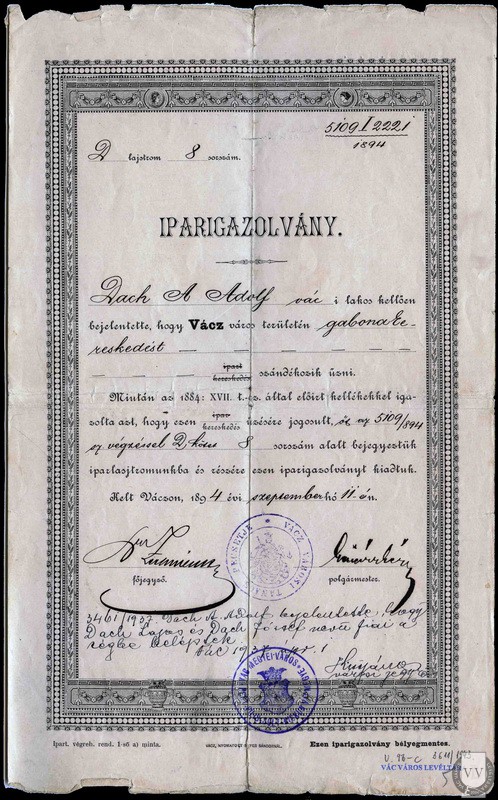 5109 I 2221
1894
D lajstrom 8 sorszám.
IPARIGAZOLVÁNY.
Dach A Adolf vác i lakos kellően
bejelentette, hogy Vácz város területén gabonake-
reskedést
ipart
kereskedés szándékozik űzni.
Mintán az 1884: XVII. t.-cz. által előirt kellékekkel iga-
zolta azt, hogy ezen ipar
kereskedés űzésére jogosult, őt az 5109/894
sz végzéssel D. köt. 8 sorszám alatt bejegyeztük
iparlajstromunkba és részére ezen iparigazolványt kiadtuk.
Kelt Váczon, 1894 évi szeptember hó 11-én.
VÁCZ VÁROSI TANÁCS
főjegyző. polgármester.
3461/1937. Dach A. Adolf bejelentette, hogy
Dach Lajos és Dach József nevü fiai a
cégbe beléptek
Vác 1937. 1
VÁC MEGYEI VÁROS
Ipart. végreh. rend. I-ső a) minta.
Ezen iparigazolvány bélyegmentes.
V. 76-c
VÁC VÁROS LEVÉLTÁR
VV